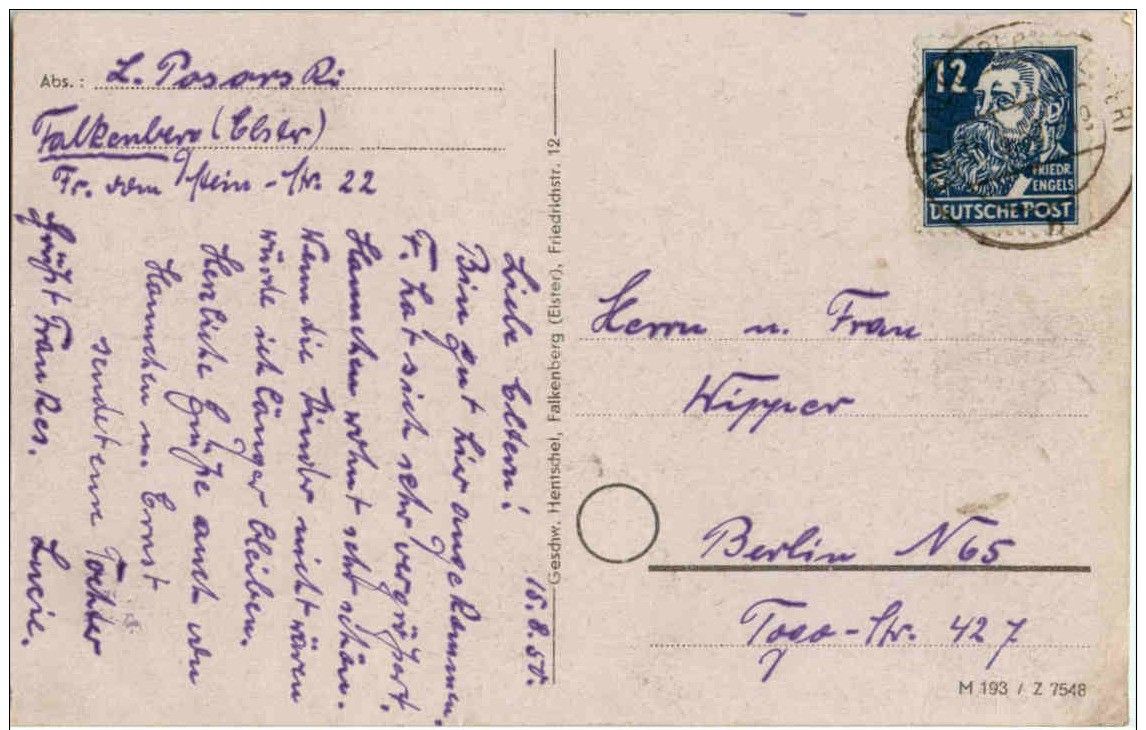 Abs.: L. Posorski
Falkenberg (Elster)
Fr. vom Stein-Str. 22
15.8.50.
Liebe Eltern!
Bin gut hier angekommen.
F. hat sich sehr vergrößert.
Hannchen wohnt sehr schön.
Wenn die Kinder nicht wären
würde ich länger bleiben.
Herzliche Grüße auch von
Hannchen u. Ernst
sendet eure Tochter
Lucie.
Grüßt Frankes.
Geschw. Hentschel, Falkenberg (Elster), Friedrichstr. 12
12
FRIEDR.
ENGELS
DEUTSCHE POST
Herrn u. Frau
Wipper
Berlin N 65
Togo-Str. 42 7
M 193 / Z 7548